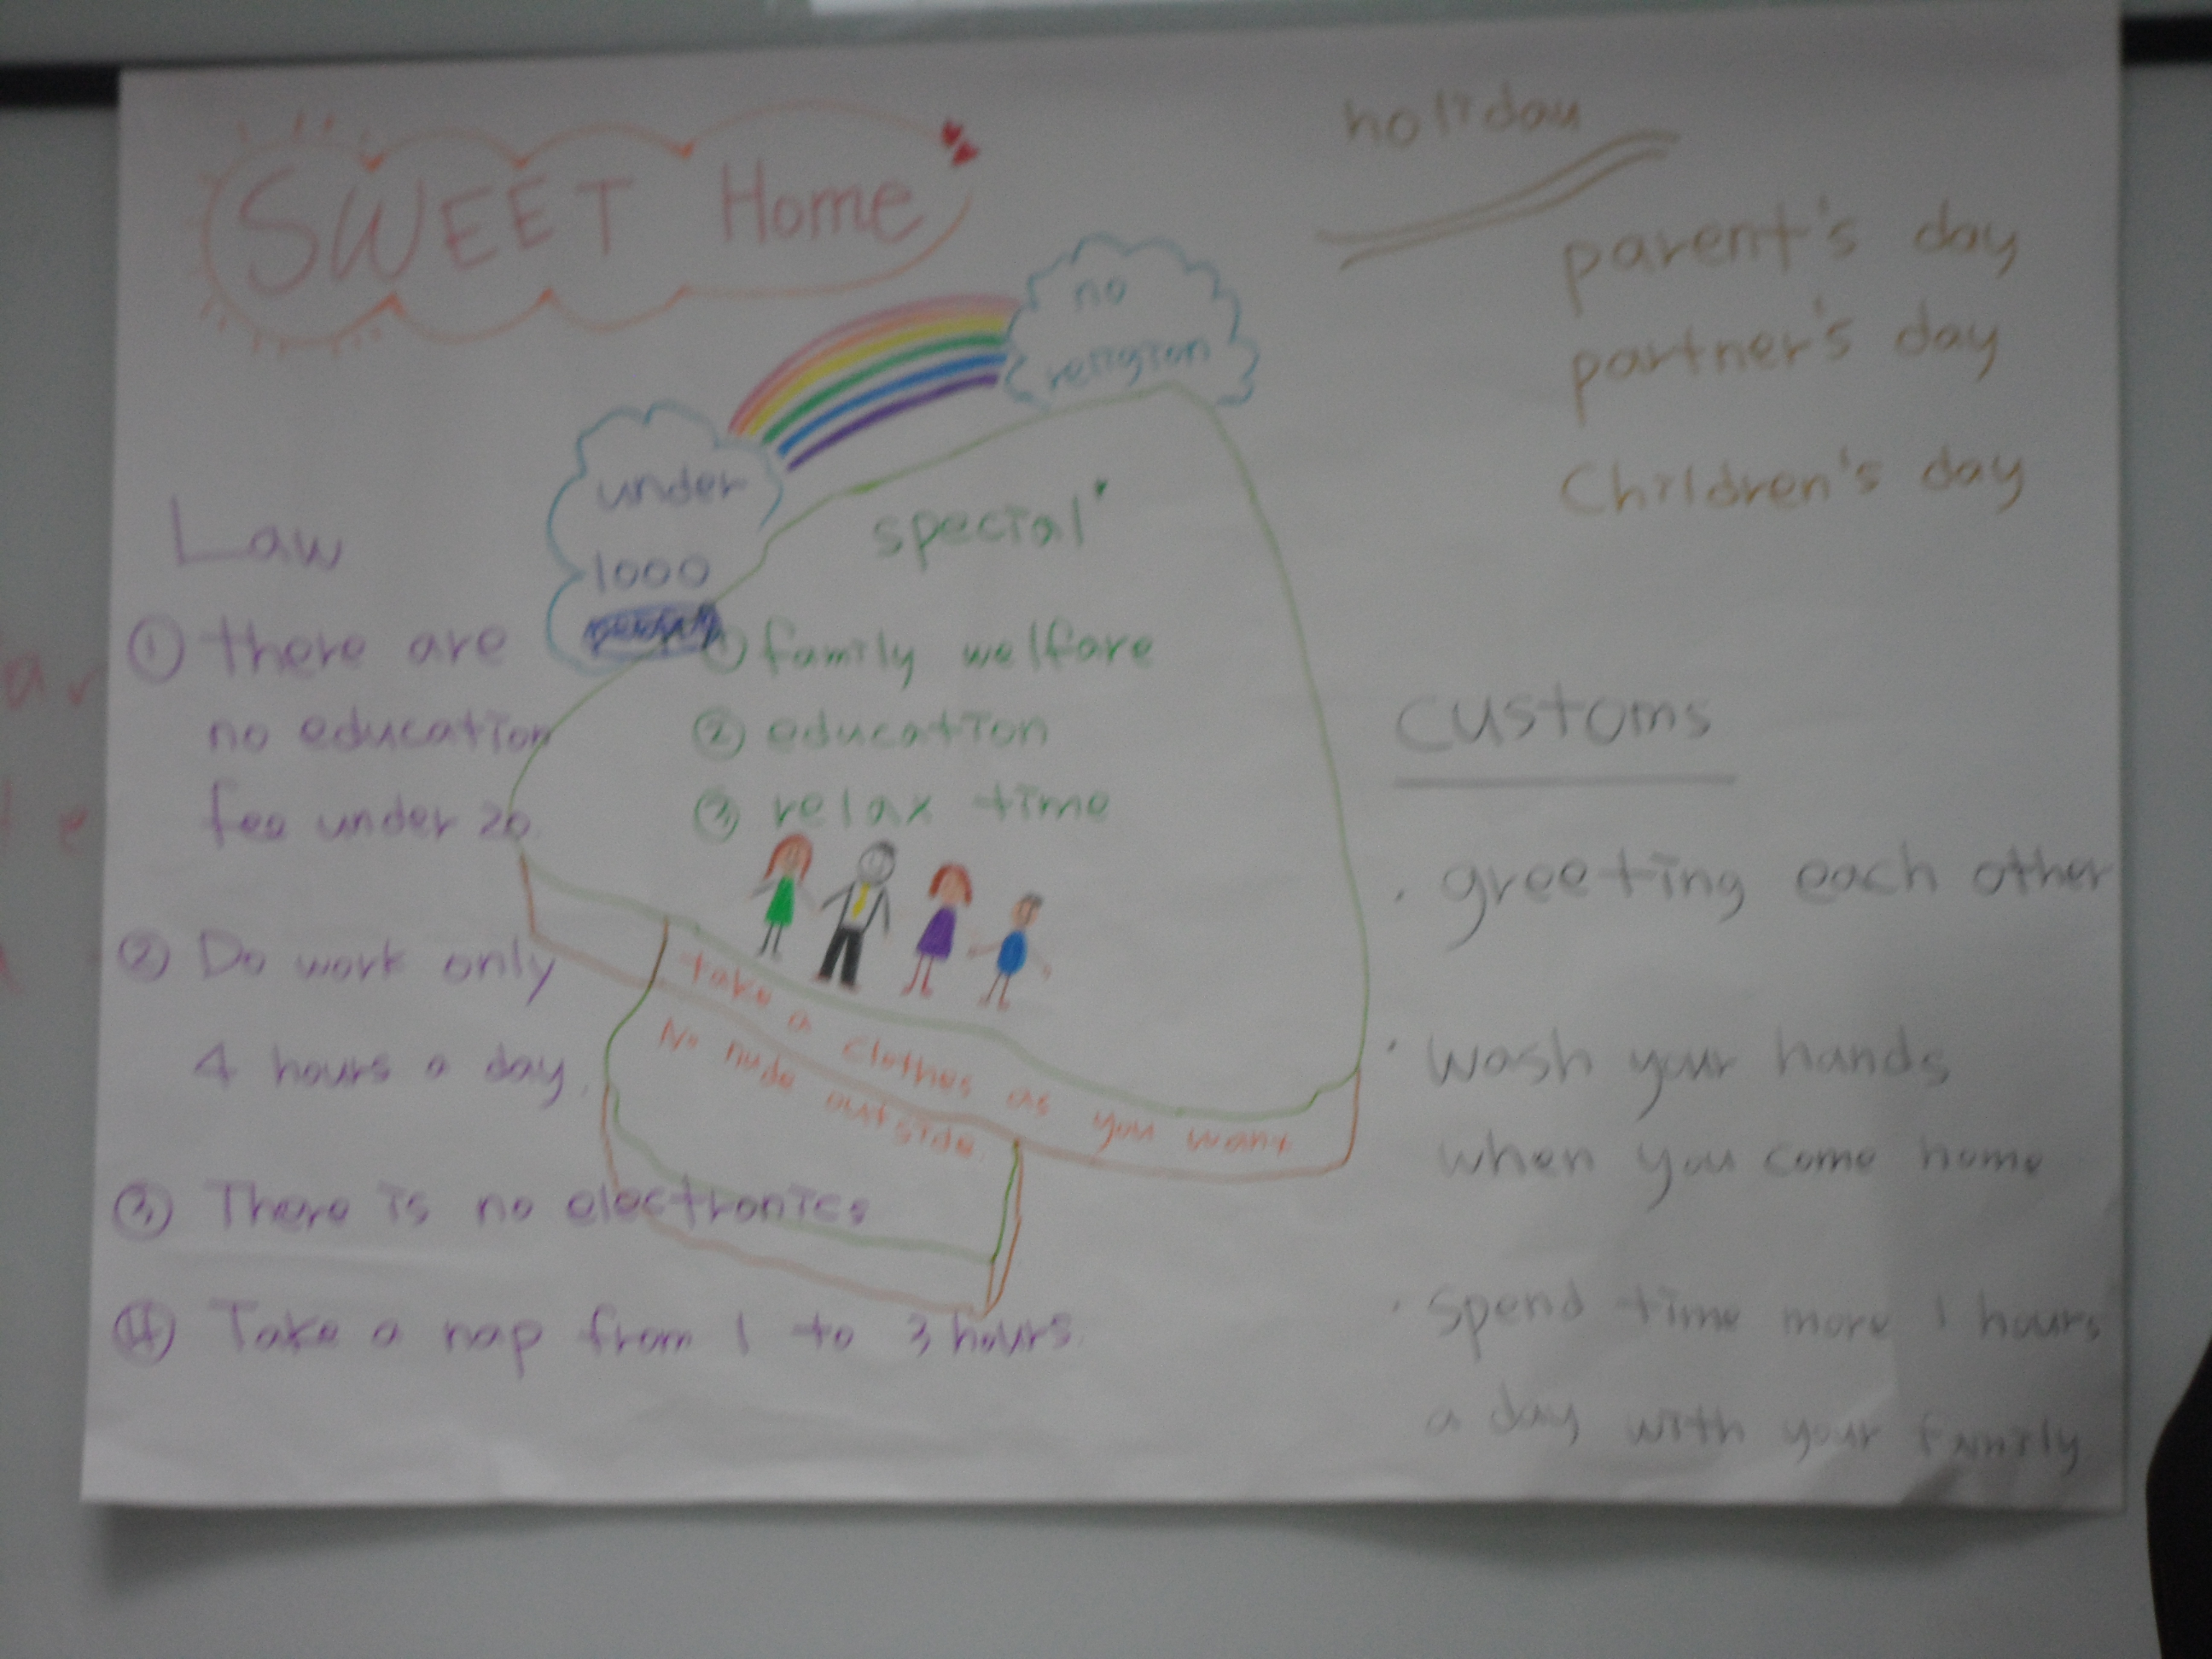 SWEET Home
holiday
parent's day
partner's day
Children's day
no
religion
under
1000
special
① family welfare
② education
③ relax time
Law
① there are
no education
fee under 20
② Do work only
4 hours a day.
③ There is no electronics
④ Take a nap from 1 to 3 hours.
take a clothes as you want
No nude outside
customs
· greeting each other
· wash your hands
when you come home
· spend time more 1 hours
a day with your family